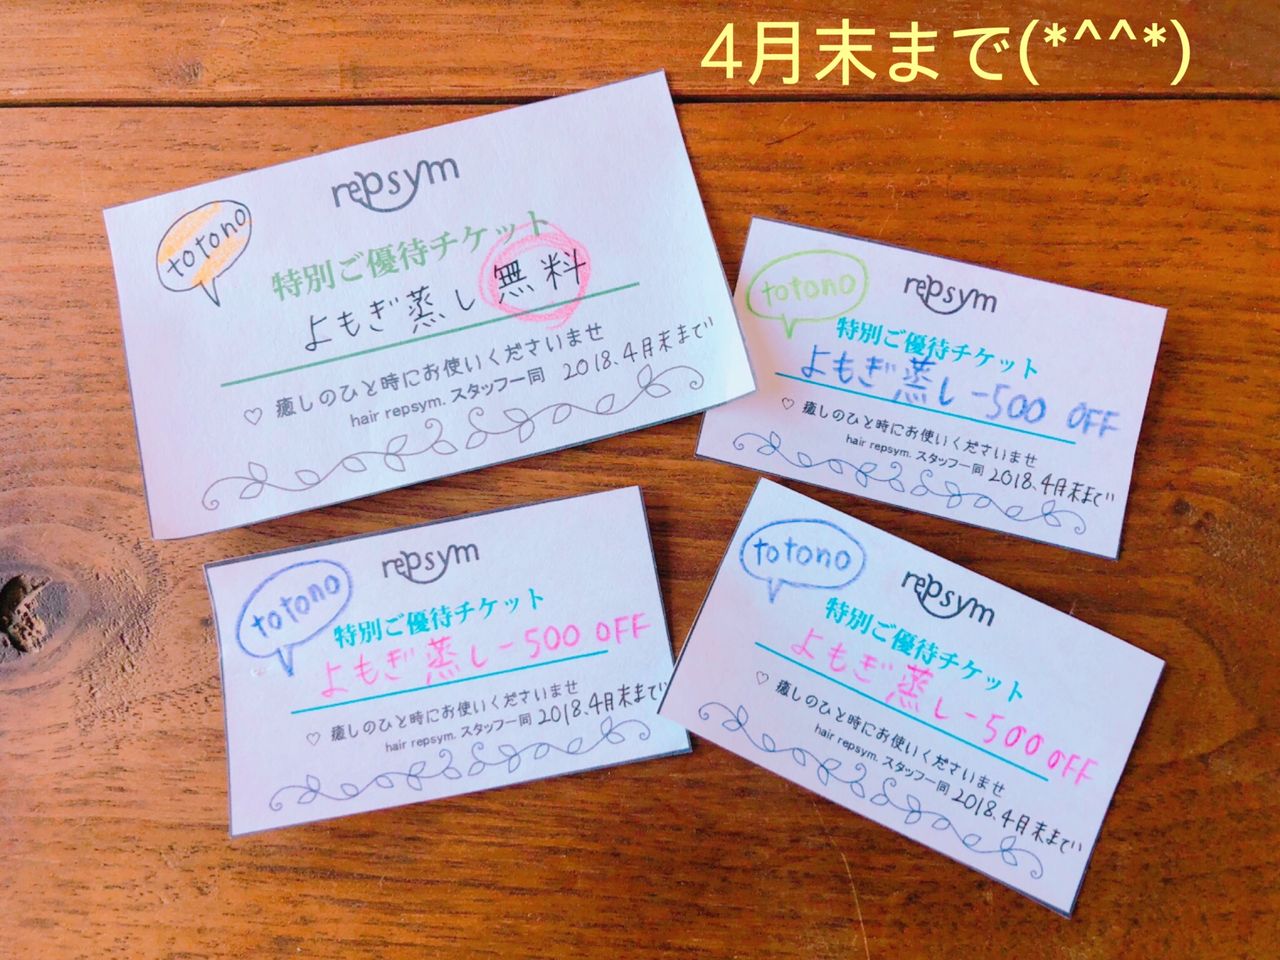 4月末まで(*^^*)
repsym
totono
特別ご優待チケット
よもぎ蒸し 無料
♡ 癒しのひと時にお使いくださいませ
hair repsym. スタッフ一同 2018.4月末まで
repsym
totono
特別ご優待チケット
よもぎ蒸し -500 OFF
♡ 癒しのひと時にお使いくださいませ
hair repsym. スタッフ一同 2018.4月末まで
repsym
totono
特別ご優待チケット
よもぎ蒸し -500 OFF
♡ 癒しのひと時にお使いくださいませ
hair repsym. スタッフ一同 2018.4月末まで
repsym
totono
特別ご優待チケット
よもぎ蒸し -500 OFF
♡ 癒しのひと時にお使いくださいませ
hair repsym. スタッフ一同 2018.4月末まで